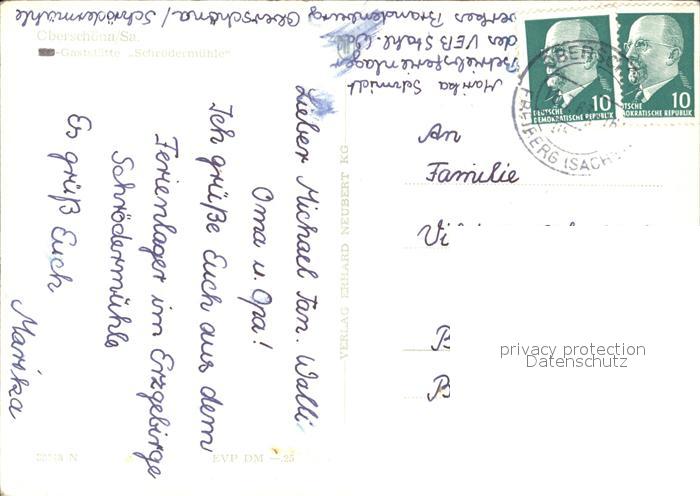 Oberschöna/Sa.
-Gaststätte „Schrödermühle"
Marika Schmidt
Betriebsferienlager
des VEB Stahl.
Brandenburg Oberschöna / Schrödermühle
Lieber Michael Tan. Walli
Oma u. Opa!
Ich grüße Euch aus dem
Ferienlager im Erzgebirge
Schrödermühle
Es grüßt Euch
Marika
VERLAG ERHARD NEUBERT KG
EVP DM —.25
10
DEUTSCHE
DEMOKRATISCHE REPUBLIK
10
DEUTSCHE
DEMOKRATISCHE REPUBLIK
OBERSCH
FREIBERG (SACHS
An
Familie
Vi
P
B
privacy protection
Datenschutz